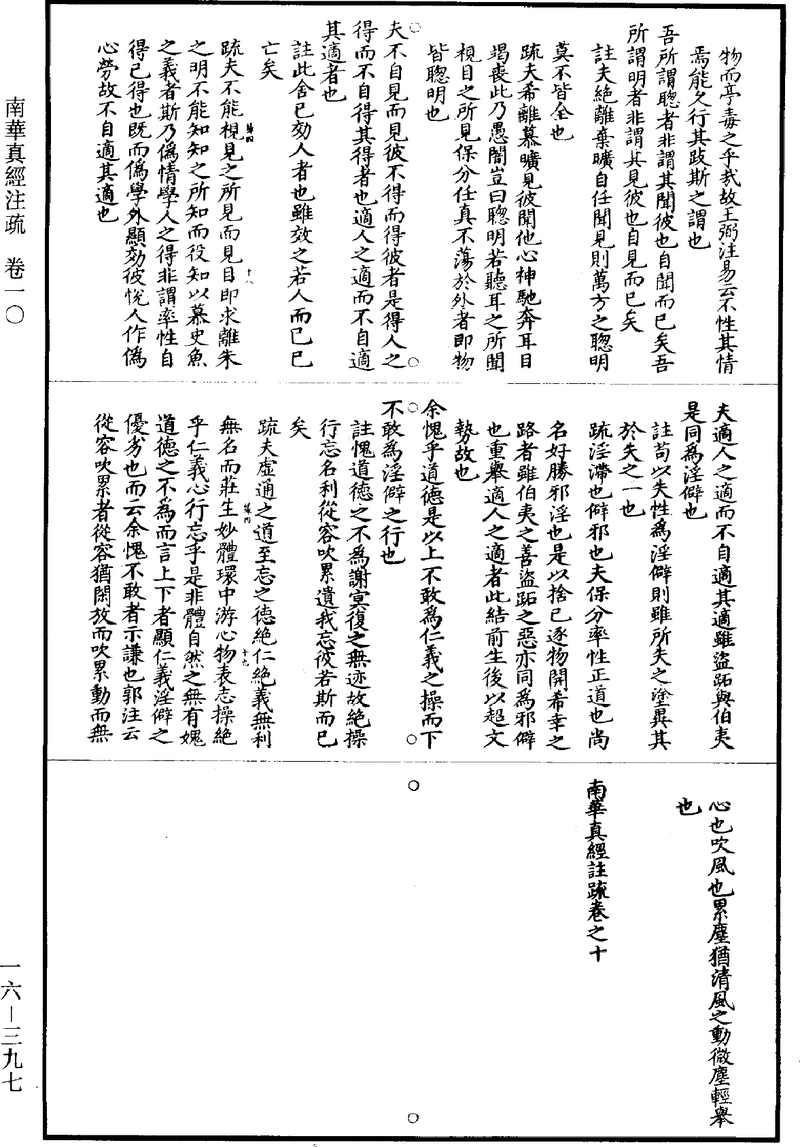 南華真經注疏　卷一〇
一六—三九七
物而亭毒之乎哉故王弼注易云不性其情
焉能久行其致斯之謂也
吾所謂聦者非謂其聞彼也自聞而已矣吾
所謂明者非謂其見彼也自見而已矣
註夫絶離棄曠自任聞見則萬方之聦明
莫不皆全也
疏夫希離慕曠見彼聞他心神馳奔耳目
竭喪此乃愚闇豈曰聦明若聽耳之所聞
視目之所見保分任真不蕩於外者即物
皆聦明也
夫不自見而見彼不得而得彼者是得人之
得而不自得其得者也適人之適而不自適
其適者也
註此舍已効人者也雖效之若人而已已
亡矣
疏夫不能視見之所見而見目即求離朱
第四
十八
之明不能知知之所知而役知以慕史魚
之義者斯乃偽情學人之得非謂率性自
得已得也既而偽學外顯効彼悅人作偽
心勞故不自適其適也
夫適人之適而不自適其適雖盜跖與伯夷
是同為淫僻也
註苟以失性為淫僻則雖所失之塗異其
於失之一也
疏淫滯也僻邪也夫保分率性正道也尚
名好勝邪淫也是以捨已逐物開希幸之
路者雖伯夷之善盜跖之惡亦同為邪僻
也重舉適人之適者此結前生後以起文
勢故也
余愧乎道德是以上不敢為仁義之操而下
不敢為淫僻之行也
註愧道德之不為謝冥復之無迹故絶操
行忘名利從容吹累遺我忘彼若斯而已
矣
疏夫虛通之道至忘之德絶仁絶義無利
無名而莊生妙體環中游心物表志操絶
第四
十九
乎仁義心行忘乎是非體自然之無有媿
道德之不為而言上下者顯仁義淫僻之
優劣也而云余愧不敢者示謙也郭注云
從容吹累者從容猶閑放而吹累動而無
心也吹風也累塵猶清風之動微塵輕舉
也
南華真經註疏卷之十